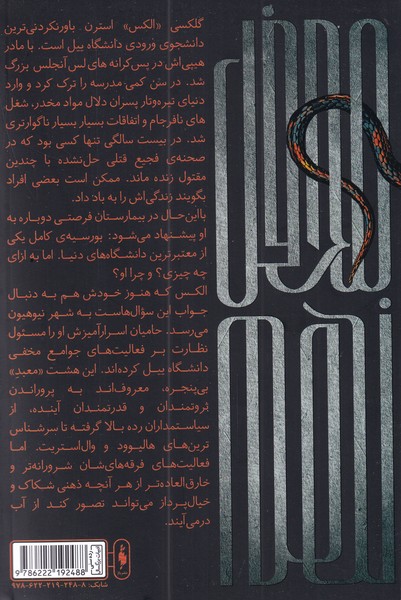 گلکسی «الکس» استرن. باورنکردنی‌ترین
دانشجوی ورودی دانشگاه ییل است. با مادر
هیپی‌اش در پس‌کرانه های لس آنجلس بزرگ
شد. در سن کمی مدرسه را ترک کرد و وارد
دنیای تیره‌وتار پسران دلال مواد مخدر، شغل
های نافرجام و اتفاقات بسیار بسیار ناگوارتری
شد. در بیست سالگی تنها کسی بود که در
صحنه‌ی فجیع قتلی حل‌نشده با چندین
مقتول زنده ماند. ممکن است بعضی افراد
بگویند زندگی‌اش را به باد داد.
بااین‌حال در بیمارستان فرصتی دوباره به
او پیشنهاد می‌شود: بورسیه‌ی کامل یکی
از معتبرترین دانشگاه‌های دنیا. اما به ازای
چه چیزی؟ و چرا او؟
الکس که هنوز خودش هم به دنبال
جواب این سؤال‌هاست به شهر نیوهیون
می‌رسد. حامیان اسرارآمیزش او را مسئول
نظارت بر فعالیت‌های جوامع مخفی
دانشگاه ییل کرده‌اند. این هشت «معبد»
بی‌پنجره، معروف‌اند به پروراندن
ثروتمندان و قدرتمندان آینده، از
سیاستمداران رده بالا گرفته تا سرشناس
ترین‌های هالیوود و وال‌استریت. اما
فعالیت‌های فرقه‌های‌شان شرورانه‌تر و
خارق‌العاده‌تر از هر آنچه ذهنی شکاک و
خیال‌پرداز می‌تواند تصور کند از آب
درمی‌آیند.
9 786222 192488
شابک: ۸-۲۴۸-۲۱۹-۶۲۲-۹۷۸